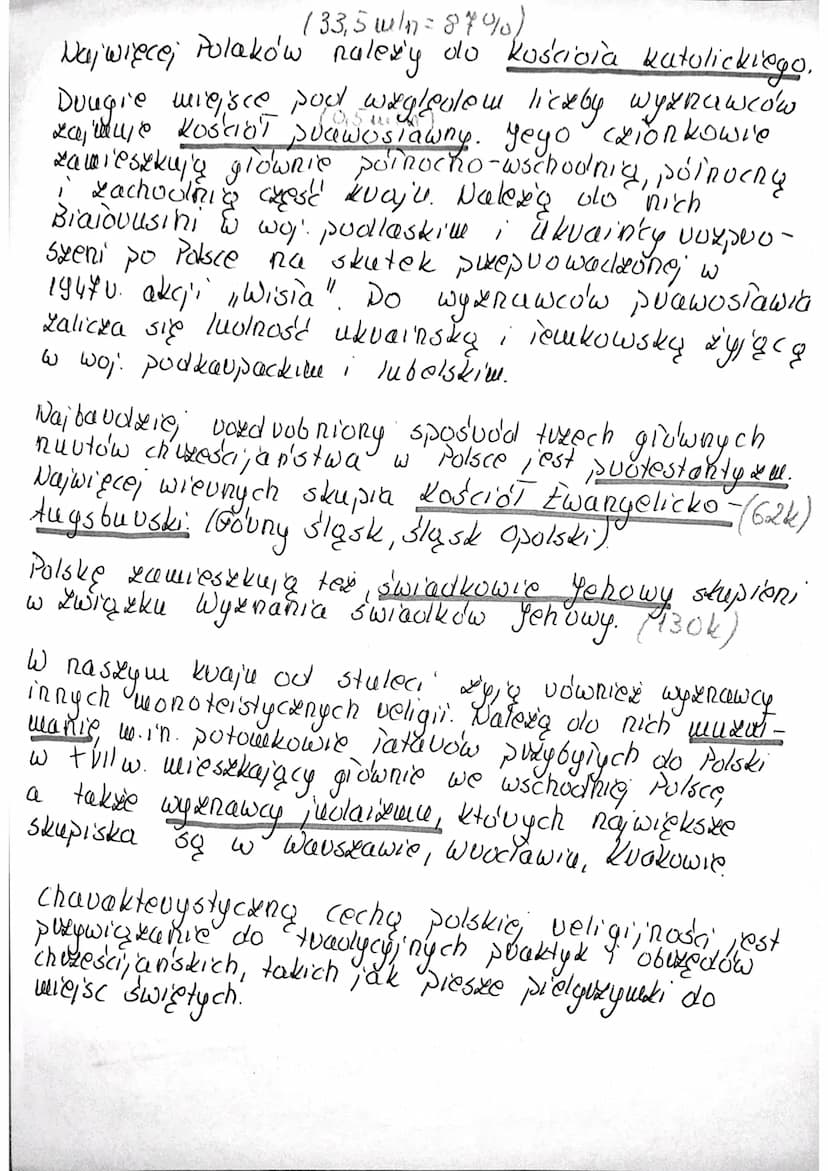 (33,5 mln = 87%)
Najwięcej Polaków należy do kościoła katolickiego.
Drugie miejsce pod względem liczby wyznawców
(0,5 mln)
zajmuje kościół prawosławny. Jego członkowie
zamieszkują głównie północno-wschodnią, północną
i zachodnią część kraju. Należą do nich
Białorusini w woj. podlaskim i Ukraińcy rozpro-
szeni po Polsce na skutek przeprowadzonej w
1947r. akcji „Wisła". Do wyznawców prawosławia
zalicza się ludność ukraińską i łemkowską żyjącą
w woj. podkarpackim i lubelskim.
Najbardziej rozdrobniony spośród trzech głównych
nurtów chrześcijaństwa w Polsce jest protestantyzm.
Najwięcej wiernych skupia Kościół Ewangelicko-(62k)
Augsburski. (Górny Śląsk, Śląsk Opolski)
Polskę zamieszkują też, świadkowie Jehowy skupieni
w Związku Wyznania Świadków Jehowy. (130k)
W naszym kraju od stuleci żyją również wyznawcy
innych monoteistycznych religii. Należą do nich muzuł-
manie, m.in. potomkowie Tatarów przybyłych do Polski
w XVII w. mieszkający głównie we wschodniej Polsce,
a także wyznawcy judaizmu, których największe
skupiska są w Warszawie, Wrocławiu, Krakowie.
Charakterystyczną cechą polskiej religijności jest
przywiązanie do tradycyjnych praktyk i obrzędów
chrześcijańskich, takich jak piesze pielgrzymki do
miejsc świętych.